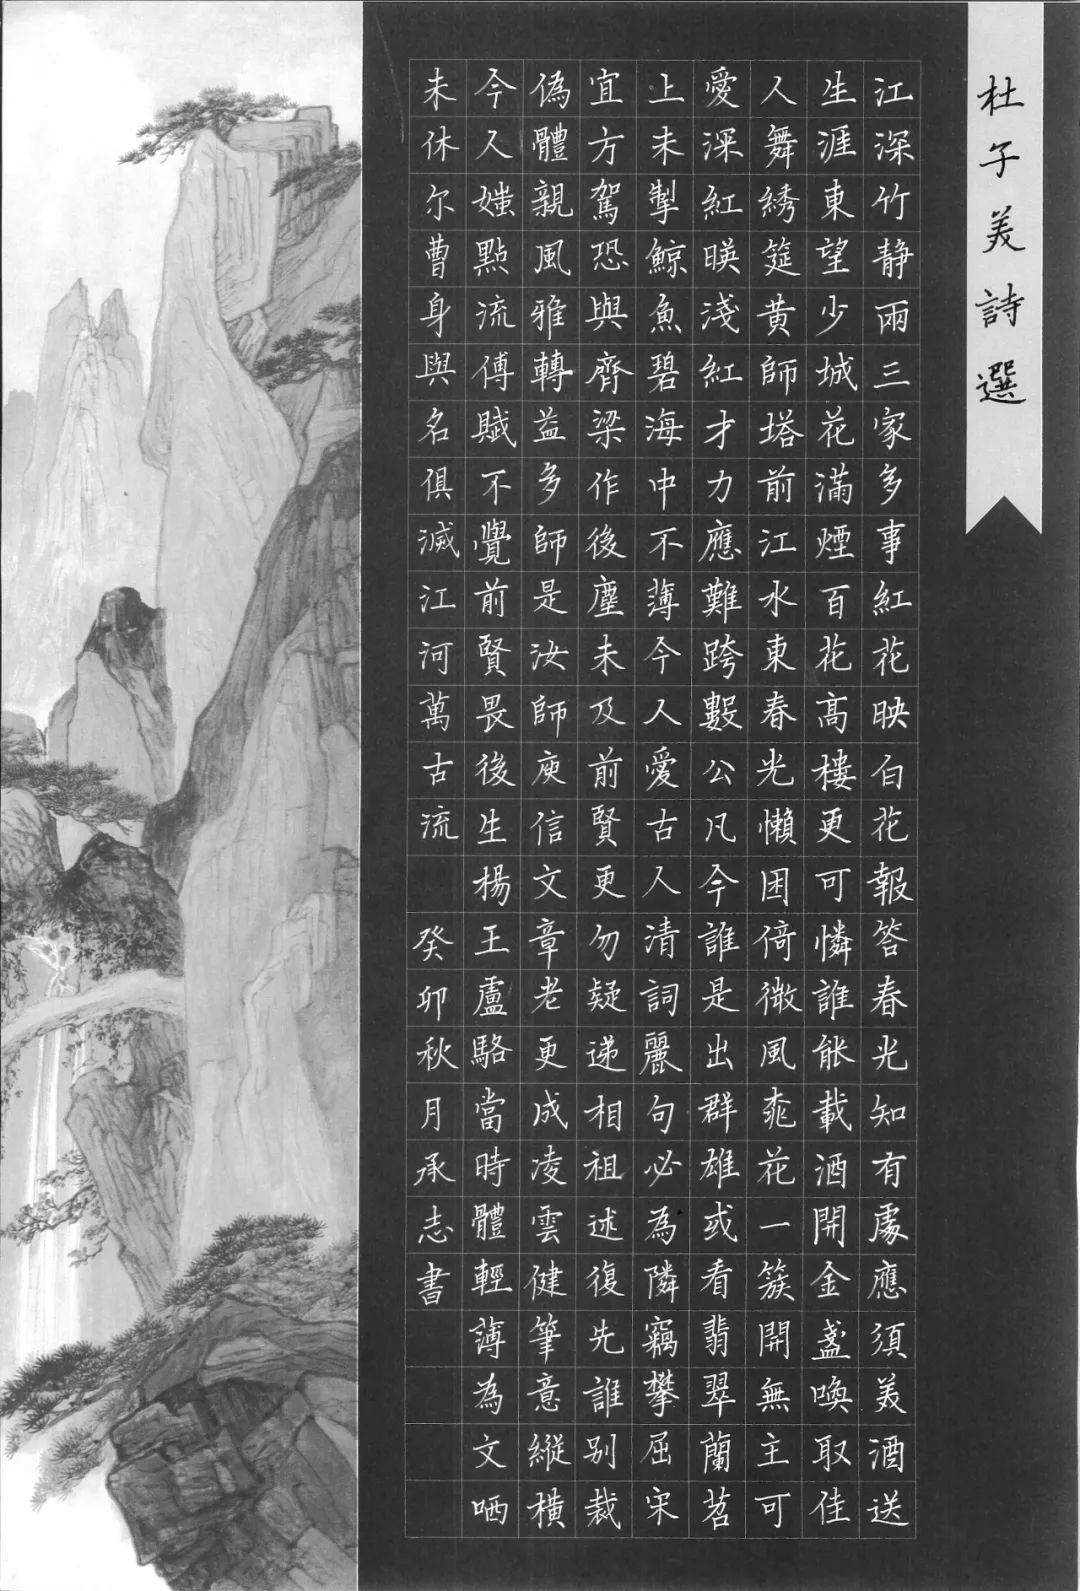 杜子美詩選
江深竹静兩三家多事紅花映白花報答春光知有處應須美酒送
生涯東望少城花滿煙百花高樓更可憐誰能載酒開金盞喚取佳
人舞綉筵黄師塔前江水東春光懶困倚微風桃花一簇開無主可
愛深紅暎淺紅才力應難跨數公凡今誰是出群雄或看翡翠蘭苕
上未掣鯨魚碧海中不薄今人愛古人清詞麗句必為隣竊攀屈宋
宜方駕恐與齊梁作後塵未及前賢更勿疑递相祖述復先誰别裁
偽體親風雅轉益多師是汝師庾信文章老更成凌雲健筆意縱横
今人嗤點流傳賦不覺前賢畏後生楊王盧駱當時體輕薄為文哂
未休尔曹身與名俱滅江河萬古流 癸卯秋月承志書